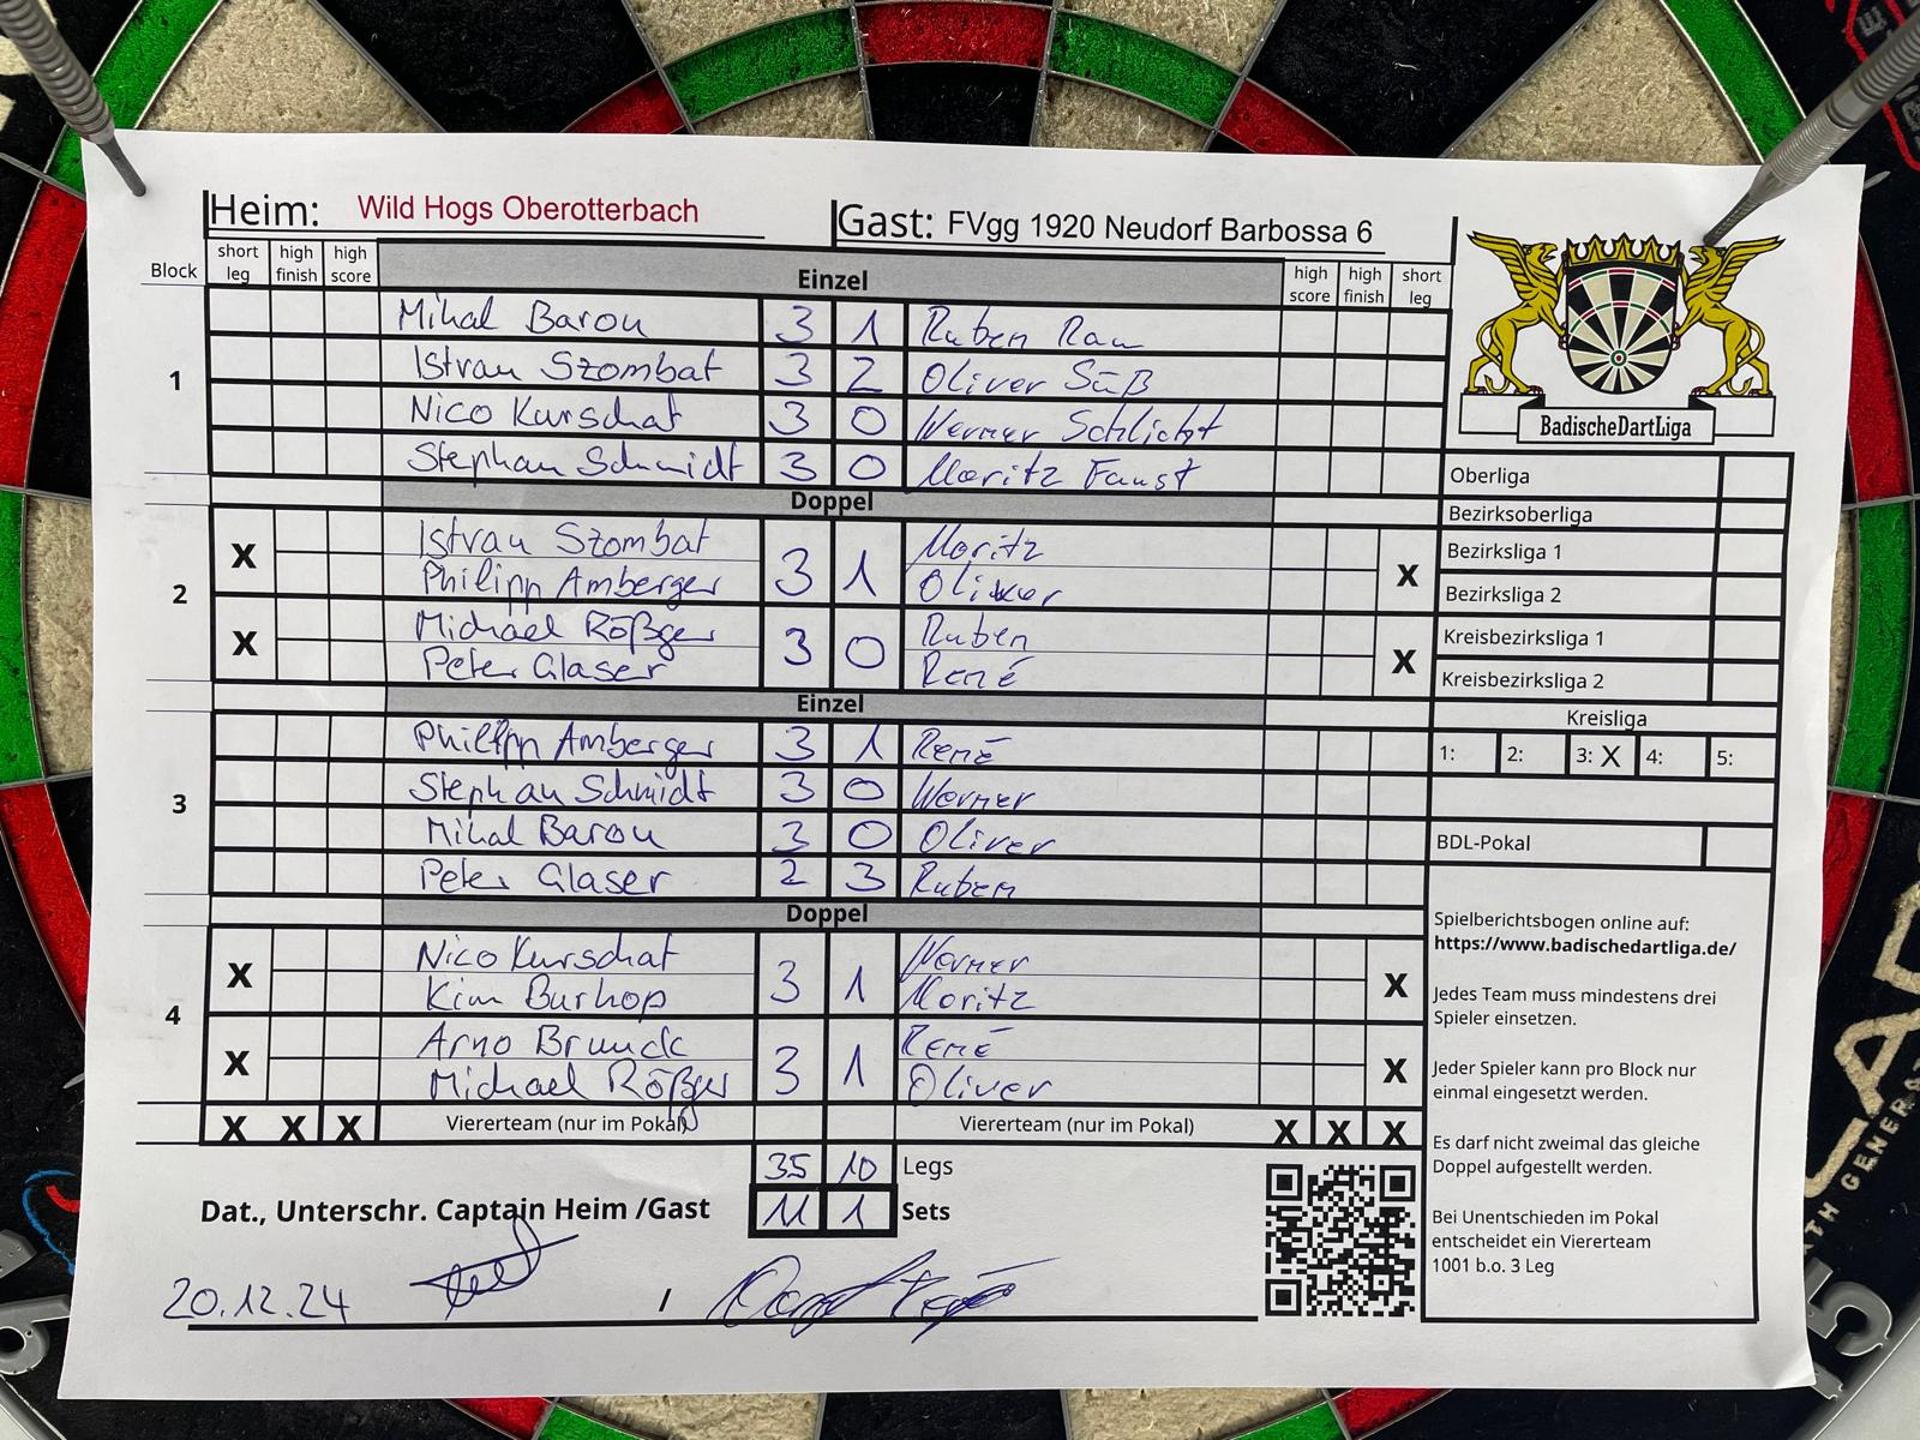 Heim: Wild Hogs Oberotterbach Gast: FVgg 1920 Neudorf Barbossa 6
Block short leg high finish high score Einzel high score high finish short leg
1
Mihal Barou 3 1 Ruben Rau
Istvan Szombat 3 2 Oliver Süß
Nico Kurschat 3 0 Werner Schlicht
Stephan Schmidt 3 0 Moritz Faust
Doppel
2
X Istvan Szombat 3 1 Moritz X
Philipp Amberger Oliver
X Michael Rößger 3 0 Ruben X
Peter Glaser René
Einzel
3
Philipp Amberger 3 1 René
Stephan Schmidt 3 0 Werner
Mihal Barou 3 0 Oliver
Peter Glaser 2 3 Ruben
Doppel
4
X Nico Kurschat 3 1 Werner X
Kim Burhop Moritz
X Arno Brunck 3 1 René X
Michael Rößger Oliver
X X X Viererteam (nur im Pokal) Viererteam (nur im Pokal) X X X
35 10 Legs
Dat., Unterschr. Captain Heim /Gast 11 1 Sets
20.12.24 /
BadischeDartLiga
Oberliga
Bezirksoberliga
Bezirksliga 1
Bezirksliga 2
Kreisbezirksliga 1
Kreisbezirksliga 2
Kreisliga
1: 2: 3: X 4: 5:
BDL-Pokal
Spielberichtsbogen online auf:
https://www.badischedartliga.de/
Jedes Team muss mindestens drei
Spieler einsetzen.
Jeder Spieler kann pro Block nur
einmal eingesetzt werden.
Es darf nicht zweimal das gleiche
Doppel aufgestellt werden.
Bei Unentschieden im Pokal
entscheidet ein Viererteam
1001 b.o. 3 Leg
15